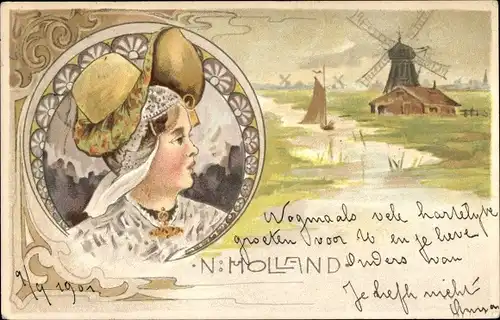 Nogmaals vele hartelijke
groeten voor U en je lieve
Ouders van
N:HOLLAND
Je liefh nicht
9/9 1901.